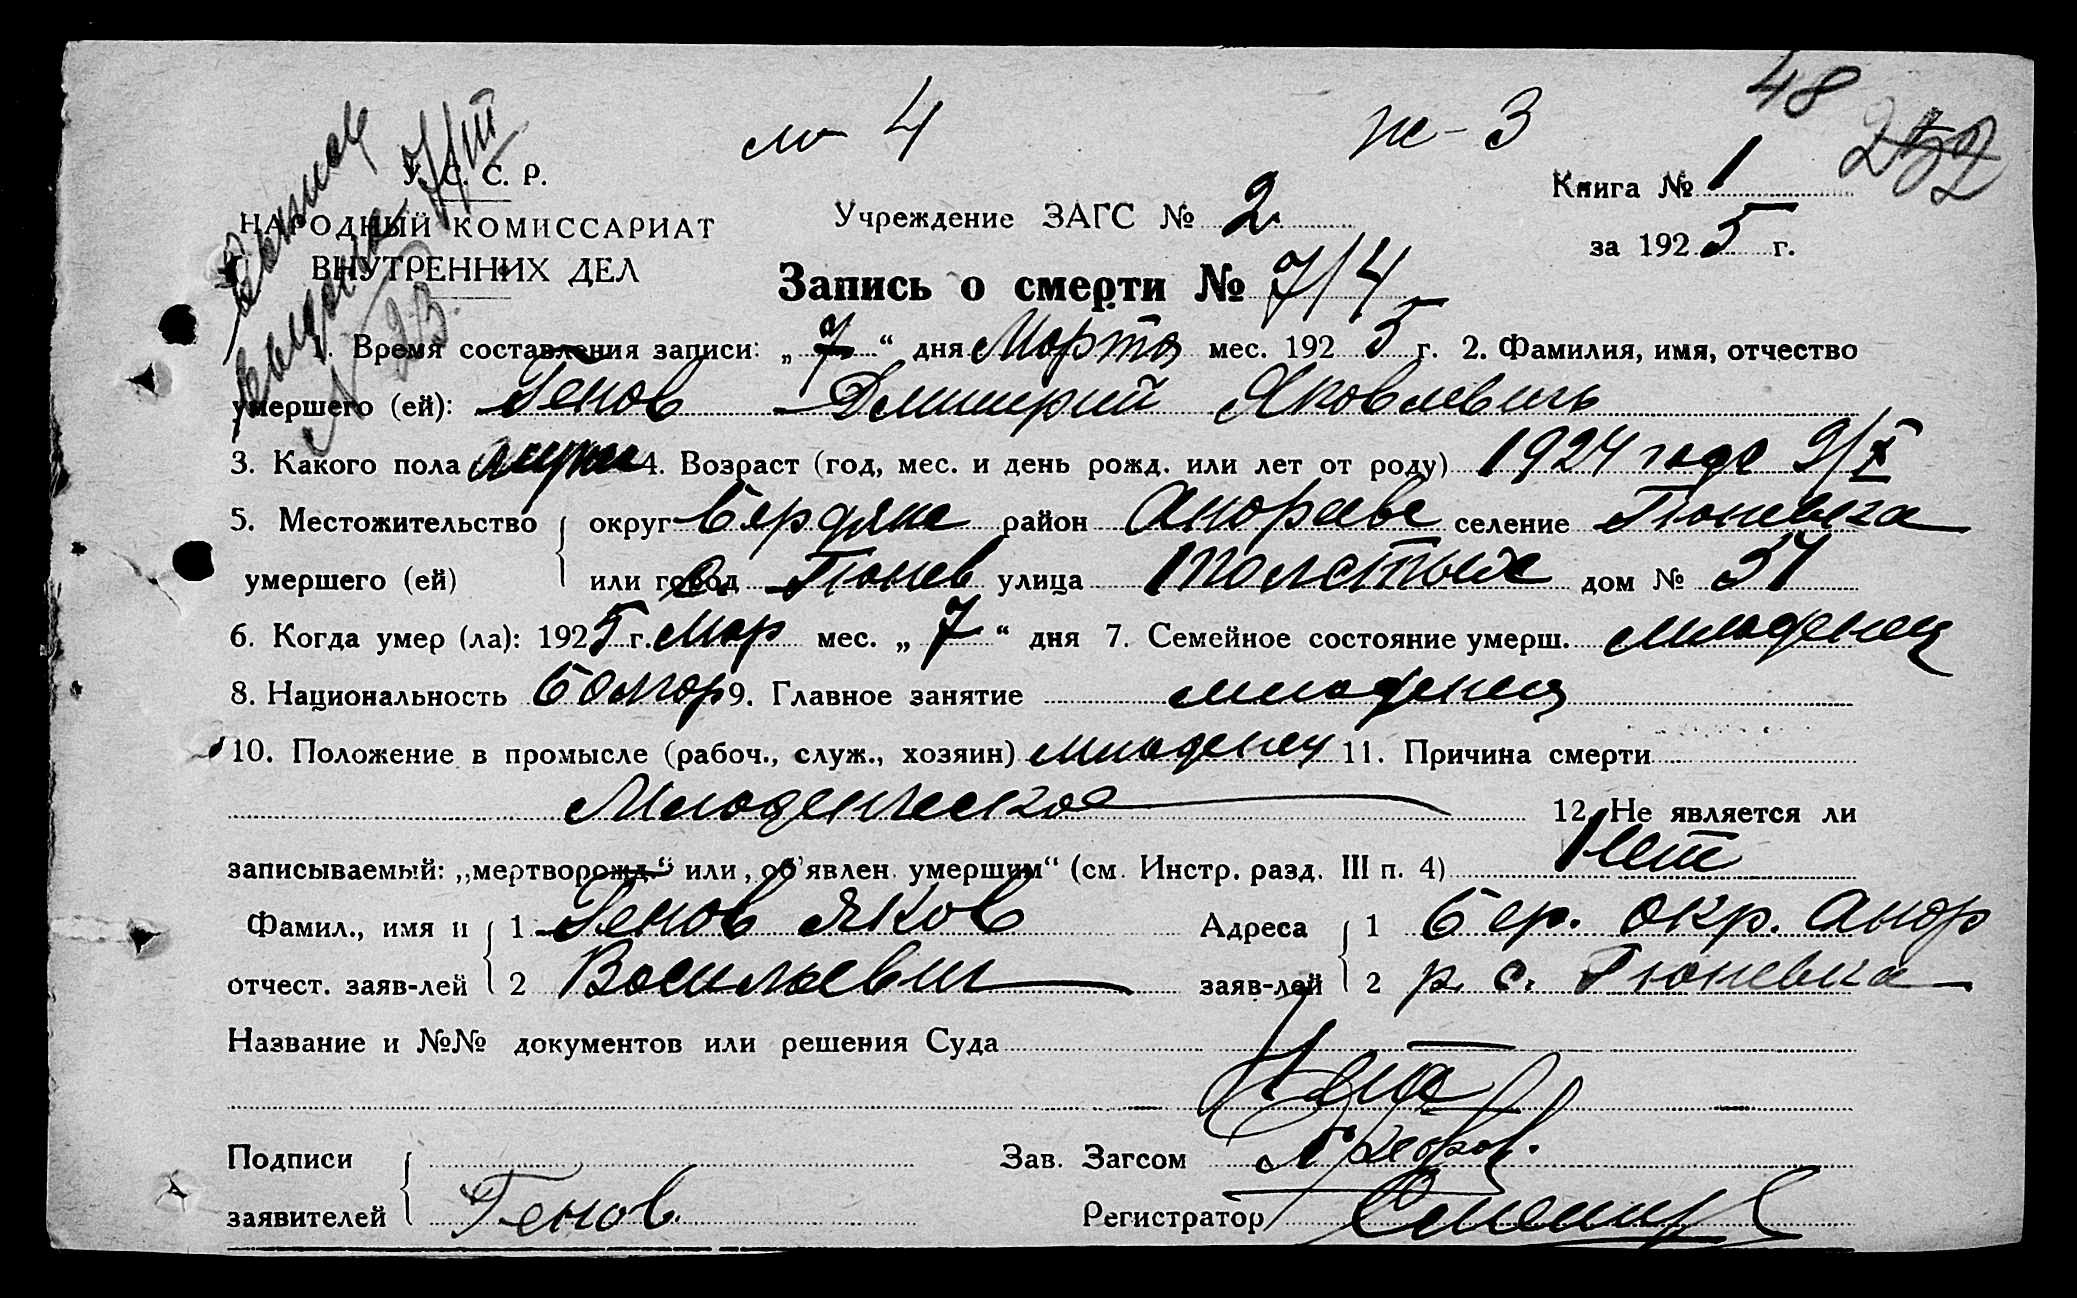 48
м 4 ж-3 252
Выпись
выдана 7/III
N 23
У. С. С. Р.
НАРОДНЫЙ КОМИССАРИАТ
ВНУТРЕННИХ ДЕЛ
Учреждение ЗАГС № 2
Книга № 1
за 1925 г.
Запись о смерти № 7/4
1. Время составления записи: „7“ дня Марта мес. 1925 г. 2. Фамилия, имя, отчество
умершего (ей): Генов Дмитрий Яковлевичь
3. Какого пола 4. Возраст (год, мес. и день рожд. или лет от роду) 1924 года 9/X
5. Местожительство округ Бердянс район Андреевс селение Гюневка
умершего (ей) или город с. Гюнев улица Толстых дом №
6. Когда умер (ла): 1925 г. Мар мес. „7“ дня 7. Семейное состояние умерш. младенец
8. Национальность болгар 9. Главное занятие младенец
10. Положение в промысле (рабоч., служ., хозяин) младенец 11. Причина смерти
Младенческая 12. Не является ли
записываемый: „мертворожд.“ или „об'явлен умершим“ (см. Инстр. разд. III п. 4) Нет
Фамил., имя и 1 Генов Яков Адреса 1 Бер. окр. Андр
отчест. заяв-лей 2 Васильевич заяв-лей 2 р. с. Гюневка
Название и №№ документов или решения Суда
Подписи Зав. Загсом
заявителей Генов. Регистратор